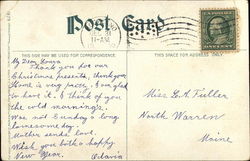 Post Card
THIS SIDE MAY BE USED FOR CORRESPONDENCE
THIS SPACE FOR ADDRESS ONLY
My Dear
Thank you for our
Christmas presents, thank you
is very pretty. Am glad
to have it. I think of you
the cold mornings.
Was not Sunday a long
lonesome day.
Mother sends love.
Wish you both a happy
New Year. Octavia
Miss G. A. Fuller
North Warren
Maine